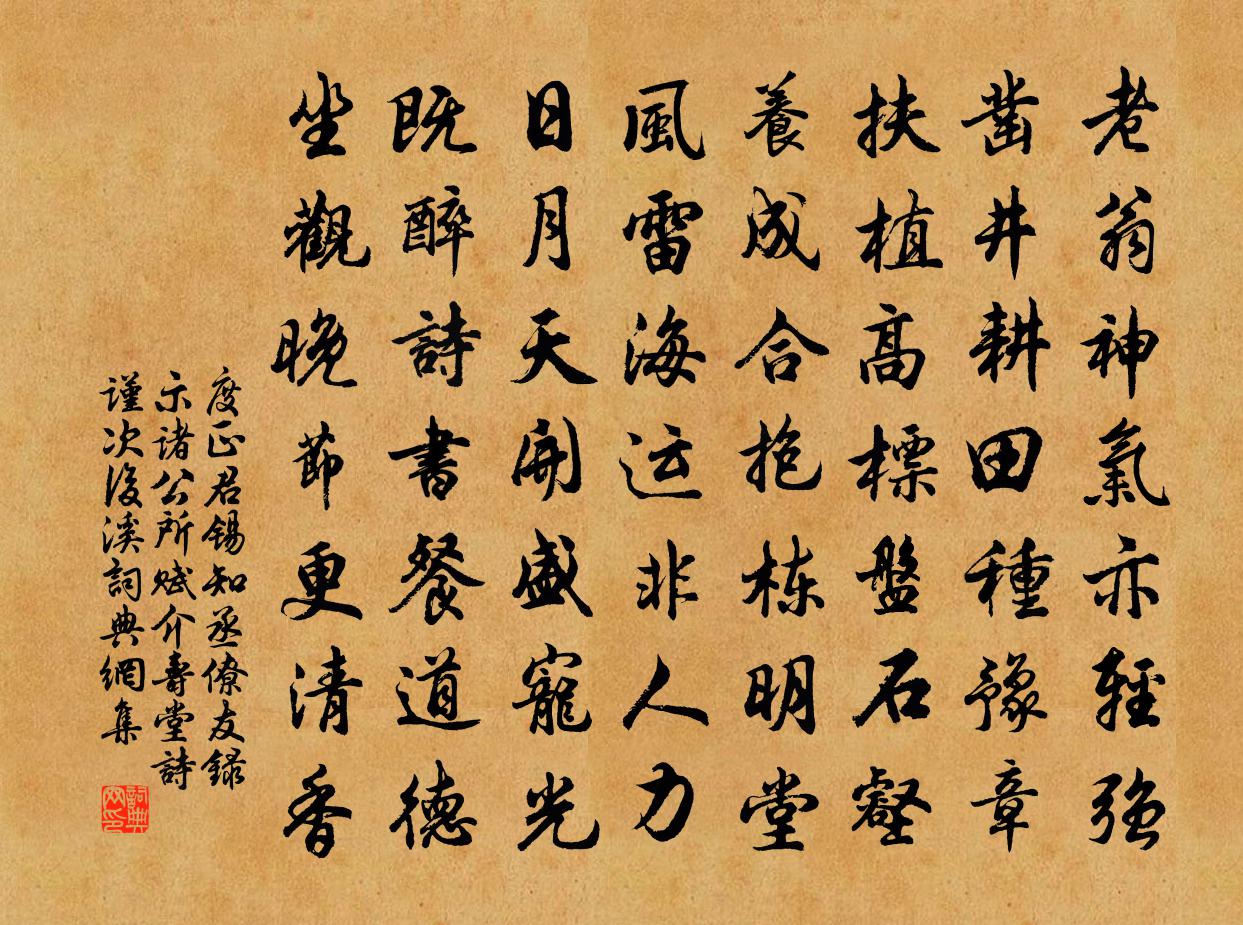 老翁神氣亦輕強
鑿井耕田種豫章
扶植高標盤石壑
養成合抱栋明堂
風雷海运非人力
日月天開盛寵光
既醉詩書餐道德
坐觀晚節更清香
度正君錫知丞僚友録
示諸公所赋介壽堂詩
謹次後溪詞典網集
詞典网印